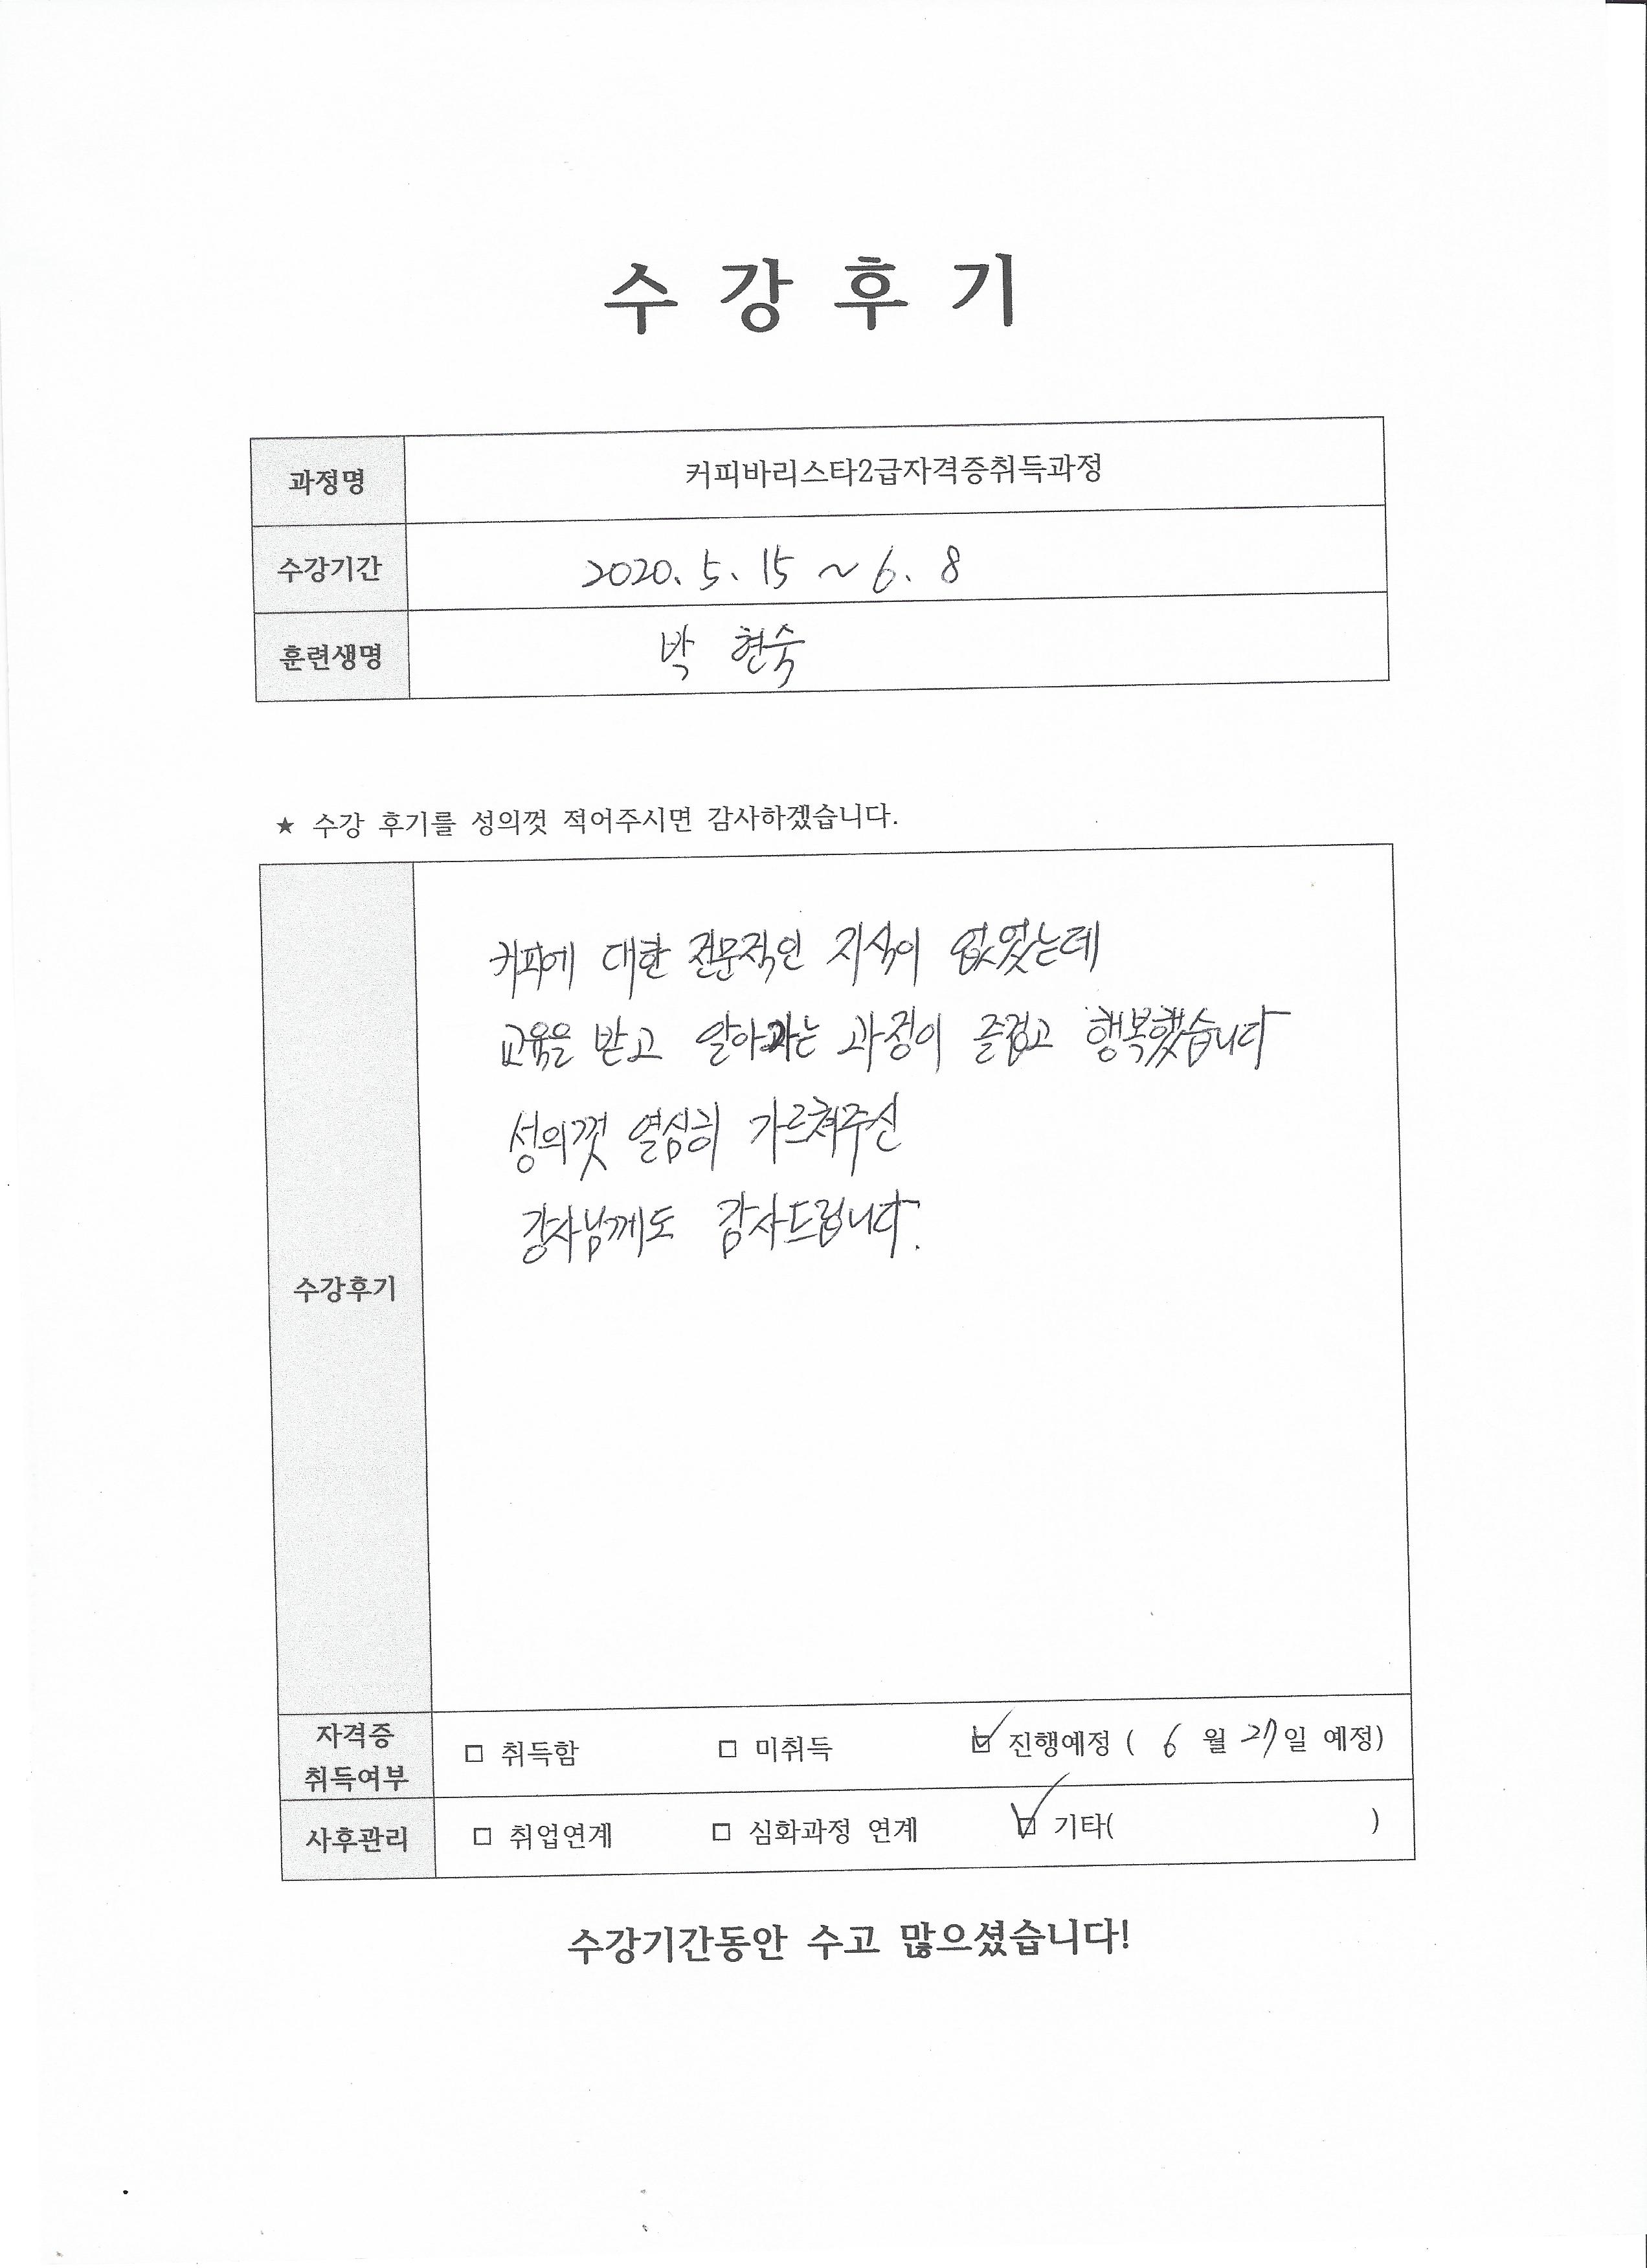 수 강 후 기
과정명 커피바리스타2급자격증취득과정
수강기간 2020. 5. 15 ~ 6. 8
훈련생명 박 현숙
★ 수강 후기를 성의껏 적어주시면 감사하겠습니다.
수강후기
커피에 대한 전문적인 지식이 없었는데
교육을 받고 알아가는 과정이 즐겁고 행복했습니다
성의껏 열심히 가르쳐주신
강사님께도 감사드립니다.
자격증 취득여부 □ 취득함 □ 미취득 ☑ 진행예정 ( 6 월 27일 예정)
사후관리 □ 취업연계 □ 심화과정 연계 ☑ 기타( )
수강기간동안 수고 많으셨습니다!